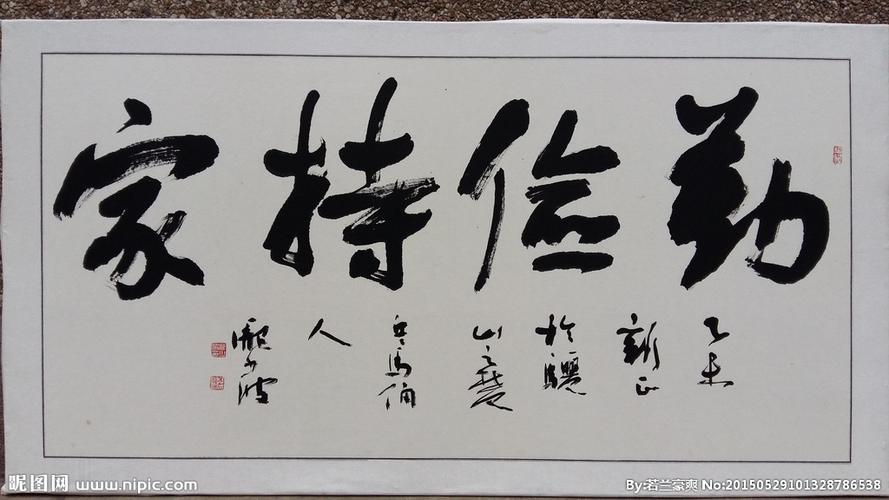 勤俭持家
乙未
新正
於驪
山之麓
兵馬俑
人
昵图网 www.nipic.com
By:若兰豪爽 No:20150529101328786538